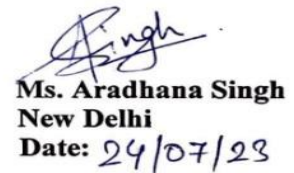 ASingh
Ms. Aradhana Singh
New Delhi
Date: 24/07/23